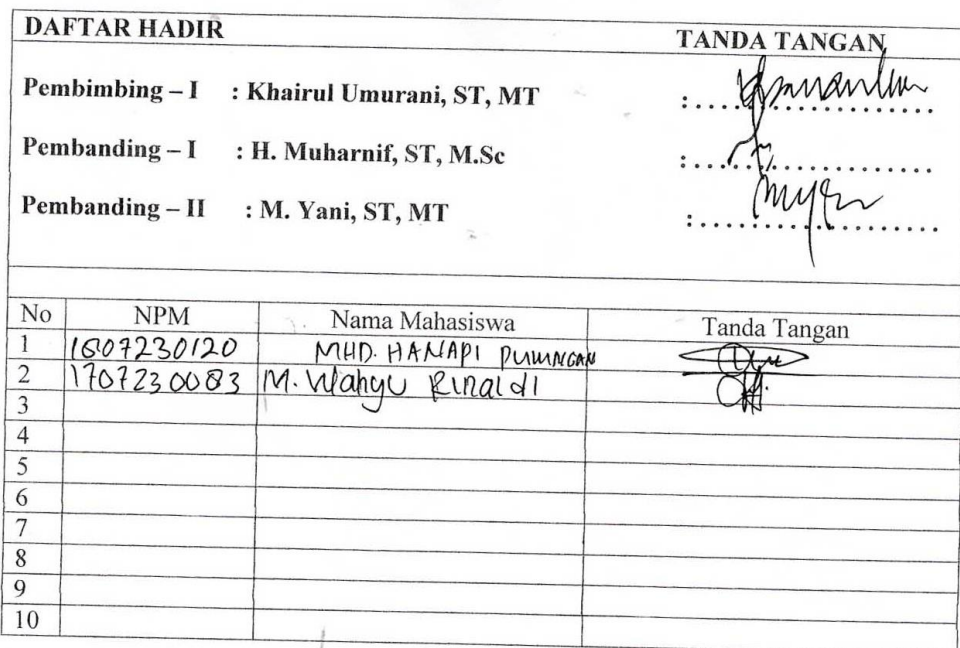 DAFTAR HADIR TANDA TANGAN
Pembimbing – I : Khairul Umurani, ST, MT :....................
Pembanding – I : H. Muharnif, ST, M.Sc :....................
Pembanding – II : M. Yani, ST, MT :....................
No NPM Nama Mahasiswa Tanda Tangan
1 1607230120 MHD. HANAPI
2 1707230083 M. Wahyu Rinaldi
3
4
5
6
7
8
9
10